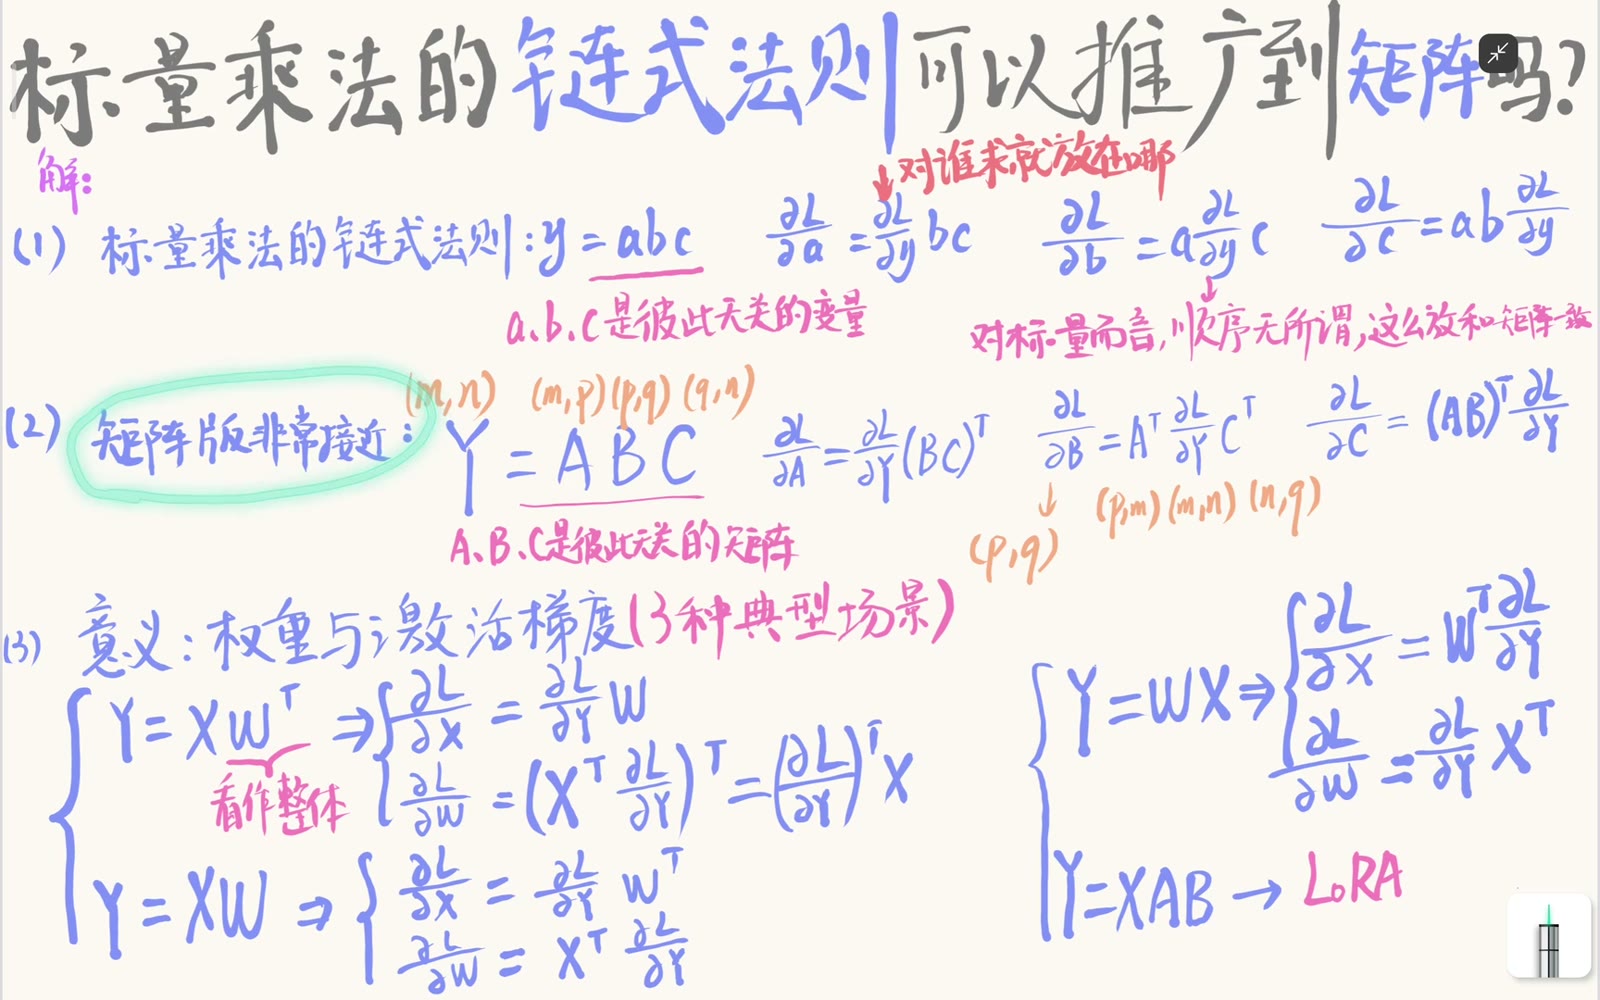 标量乘法的链式法则可以推广到矩阵吗?
解:
↓对谁求就放在哪
(1) 标量乘法的链式法则:y=abc ∂L/∂a = ∂L/∂y bc ∂L/∂b = a ∂L/∂y c ∂L/∂c = ab ∂L/∂y
a、b、c是彼此无关的变量
对标量而言,顺序无所谓,这么放和矩阵一致
(m,n) (m,p)(p,q)(q,n)
(2) 矩阵版非常接近: Y=ABC ∂L/∂A = ∂L/∂Y (BC)^T ∂L/∂B = A^T ∂L/∂Y C^T ∂L/∂C = (AB)^T ∂L/∂Y
A、B、C是彼此无关的矩阵
(p,q) (p,m)(m,n)(n,q)
(3) 意义:权重与激活梯度(3种典型场景)
Y=XW^T ⇒ ∂L/∂X = ∂L/∂Y W
看作整体
∂L/∂W = (X^T ∂L/∂Y)^T = (∂L/∂Y)^T X
Y=XW ⇒ ∂L/∂X = ∂L/∂Y W^T
∂L/∂W = X^T ∂L/∂Y
Y=WX ⇒ ∂L/∂X = W^T ∂L/∂Y
∂L/∂W = ∂L/∂Y X^T
Y=XAB → LoRA